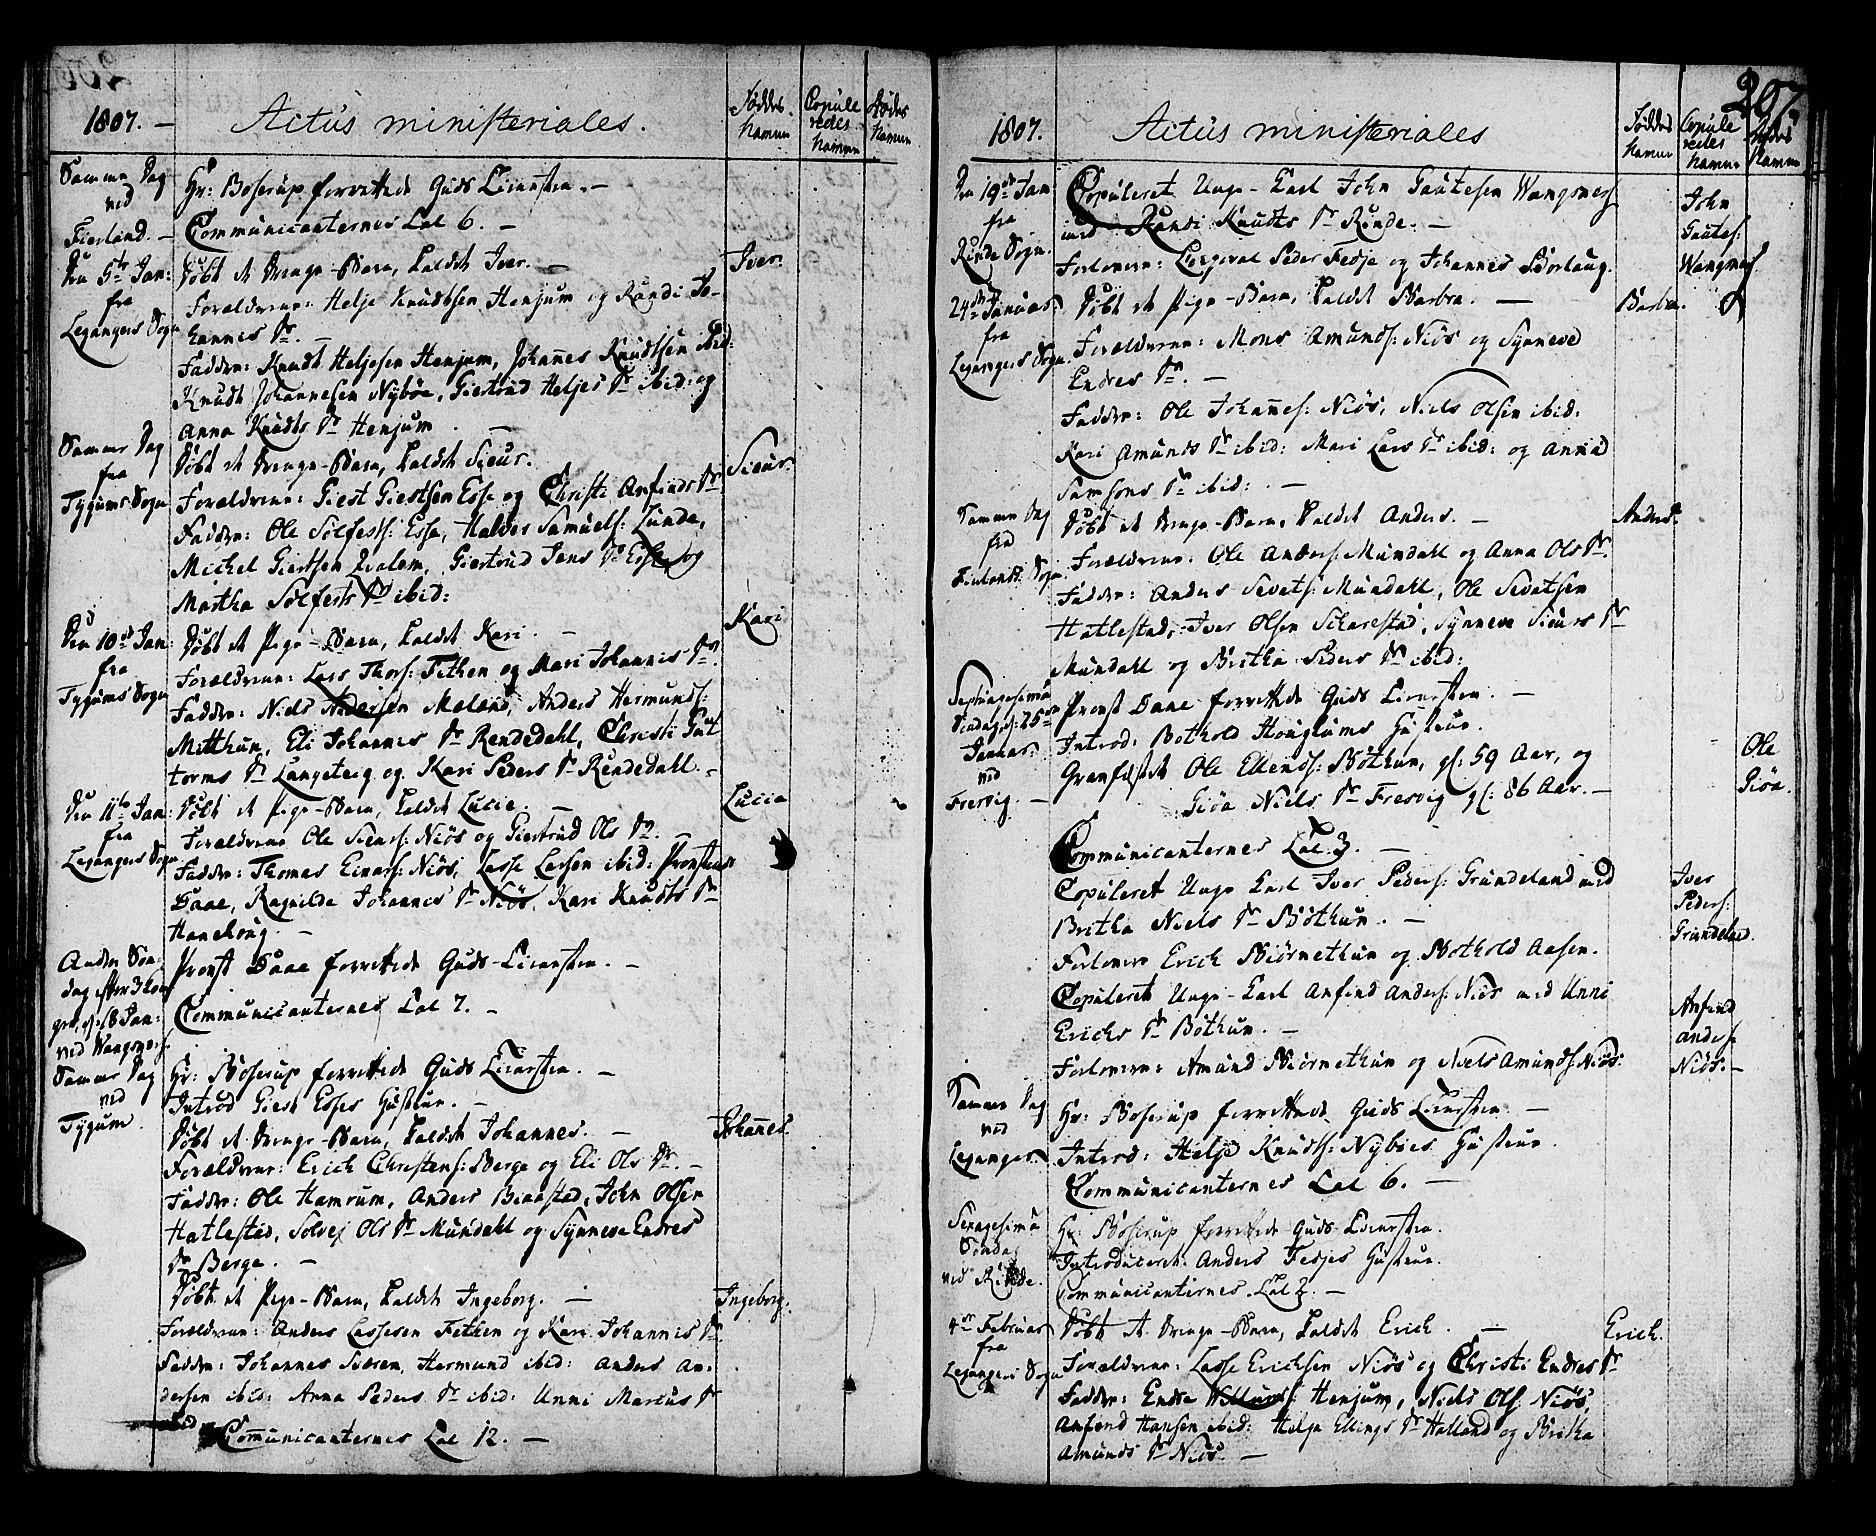 207.
1807. — Actus ministeriales. Føddes Namne Copule redes Namne Dødes Namne
Samme Dag ved Fierland. —
Hr: Boserup forrettede Guds Tienesten. —
Communicanternes Tal 6. —
Den 5te Jan: fra Legangers Sogn
Døbt et Drenge-Barn, kaldet Iver. — Iver.
Forældrene: Helje Knudtsen Henjum og Randi Jo-
hannes Dr. —
Faddere: Knudt Heljesen Henjum, Johannes Knudtsen ibid:
Knudt Johannesen Nybøe, Giertrud Heljes Dr ibid: og
Anna Knudts Dr Henjum. —
Samme Dag fra Tygums Sogn
Døbt et Drenge-Barn, kaldet Siur. Siur.
Forældrene: Giest Giestsen Esse og Christi Anfinds Dr
Faddere: Ole Solfests: Esse, Haldor Samuels: Lunde,
Michel Giestsen Qvalem, Giertrud Jens Dr Esse og
Martha Solfests Dr ibid:
Den 10de Jan: fra Tygums Sogn
Døbt et Pige-Barn, kaldet Kari. — Kari
Forældrene: Lars Thors: Fethen og Mari Johannis Dr.
Faddere: Niels Andersen Meland, Anders Hermunds:
Mitthun, Eli Johannes Dr Rendedahl, Christi Gut
torms Dr Langeteig og Kari Peders Dr Rendedahl. —
Den 11te Jan: fra Legangers Sogn
Døbt et Pige-Barn, kaldet Lucie. — Lucia
Forældrene Ole Siurs: Niøs og Giertrud Ols Dr. —
Faddere: Thomas Einars: Niøs, Lasse Larsen ibid: Provstinde
Daae, Ragnilde Johannes Dr Niøs, Kari Knudts Dr
Hanehoug. —
Anden Søn-
dag efter 3 Kon
ger, d: 18 Jan:
ved Wangsnes
Provst Daae forrettede Guds-Tienesten. —
Communicanternes Tal 7. —
Samme Dag ved Tygum.
Hr: Boserup forrettede Guds Tienesten. —
Introd Giest Esses Hustrue. —
Døbt et Drenge-Barn, kaldet Johannes. — Johannes.
Forældrene: Erich Christens: Berge og Eli Ols Dr. —
Faddere: Ole Hamrum, Anders Benastad, John Olsen
Hatlestad, Solvej Ols Dr Mundahl og Synneve Endres
Dr Berge. —
Døbt et Pige-Barn, kaldet Ingeborg. — Ingeborg.
Forældrene: Anders Lassesen Fethen og Kari Johannis Dr
Faddere: Johannes Siøren, Hermund ibid: Anders An-
dersen ibid: Anna Peders Dr ibid: Unni Marcus Dr
ibid
Communicanternes Tal 12. —
1807. Actus ministeriales Føddes Namne Copule redes Namne Dødes Namne
Den 19de Jan: fra Rinde Sogn.
Copuleret Unge-Karl John Gautesen Wangsnes John Gautes: Wangsnes
med Randi Knudts Dr Rinde. —
Forlovere: Corporal Peder Fedje og Johannes Borlaug.
24de Januar: fra Legangers Sogn.
Døbt et Pige-Barn, kaldet Barbra. — Barbra.
Forældrene: Mons Amunds: Niøs og Synneved
Endres Dr. —
Faddere: Ole Johannes: Niøs, Niels Olsen ibid:
Kari Amunds Dr ibid: Mari Lars Dr ibid: og Anna
Samsons Dr ibid: —
Samme Dag fra Fierlands Sogn.
Døbt et Drenge-Barn, kaldet Anders. — Anders.
Forældrene: Ole Anders: Mundahl og Anna Ols Dr.
Faddere: Anders Sevats: Mundahl, Ole Sevatsen
Hatlestad, Iver Olsen Skarestad, Synneve Siurs Dr
Mundahl og Britha Peders Dr ibid:
Septuagesima Søndag d: 25de Januar: ved Fresvig. —
Provst Daae forrettede Guds Tienesten. —
Introd: Bothold Houglums Hustrue.
Gravfæstet Ole Ellends: Bøthun, gl: 59 Aar, og Ole
Giøa Niels Dr Fresvig gl: 86 Aar. — Giøa.
Communicanternes Tal 3. —
Copuleret Unge Karl Iver Peders: Grundeland med Iver Peders: Grindeland.
Britha Niels Dr Bøthun. —
Forlovere Erich Biørnethun og Bothold Aasen.
Copuleret Unge-Karl Anfind Anders: Niøs med Unni Anfind Anders: Niøs. —
Erichs Dr Bøthun. —
Forlovere: Amund Biørnethun og Niels Amunds: Niøs.
Samme Dag ved Leganger.
Hr: Boserup forrettede Guds Tienesten. —
Introd: Helje Knuds: Nybøes Hustrue.
Communicanternes Tal 6. —
Sexagesima Søndag ved Rinde.
Hr: Boserup forrettede Guds-Tienesten.
Introduceret: Anders Fedjes Hustrue.
Communicanternes Tal 2. —
4de Februar: fra Legangers Sogn
Døbt et Drenge-Barn, kaldet Erich. — Erich.
Forældrene: Lasse Erichsen Niøs og Christi Endres Dr
Faddere: Endre Henjum, Niels Ols: Niøs,
Anfind Hansen ibid: Helga Ellings Dr Hatland og Britha
Amunds Dr Niøs. —